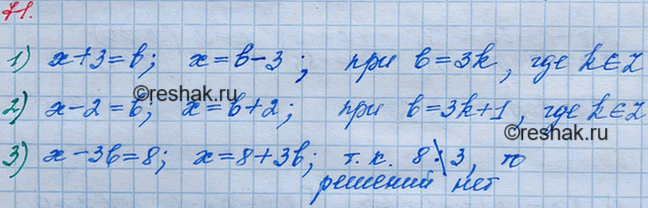 71.
1) x+3=b; x=b-3; при b=3k, где k∈Z
©reshak.ru
2) x-2=b; x=b+2; при b=3k+1, где k∈Z
©reshak.ru
3) x-3b=8; x=8+3b; т.к. 8⋮\3, то
решений нет